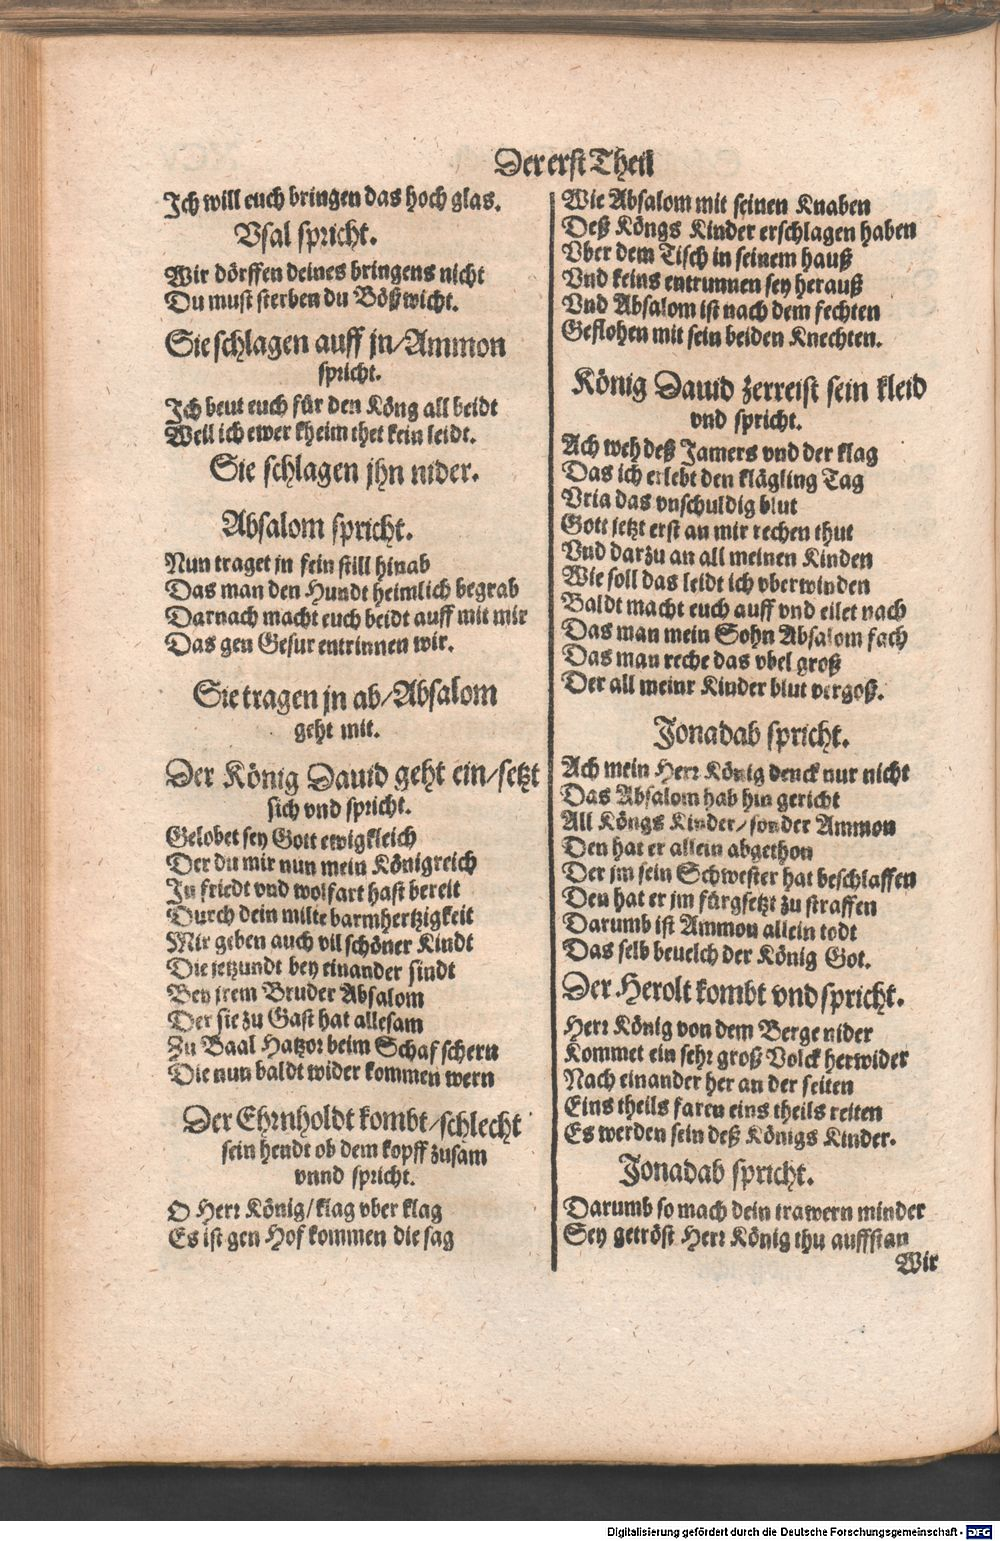 Der erst Theil
Ich will euch bringen das hoch glas.
Vsal spricht.
Wir dörffen deines bringens nicht
Du must sterben du Bößwicht.
Sie schlagen auff jn/Ammon
spricht.
Ich beut euch für den Köng all beidt
Weil ich ewer kheim thet kein leidt.
Sie schlagen jhn nider.
Absalom spricht.
Nun traget jn fein still hinab
Das man den Hundt heimlich begrab
Darnach macht euch beidt auff mit mir
Das gen Gesur entrinnen wir.
Sie tragen jn ab/Absalom
geht mit.
Der König Dauid geht ein/setzt
sich vnd spricht.
Gelobet sey Gott ewigkleich
Der du mir nun mein Königreich
In friedt vnd wolfart hast bereit
Durch dein milte barmhertzigkeit
Mir geben auch vil schöner Kindt
Die jetzundt bey einander sindt
Bey jrem Bruder Absalom
Der sie zu Gast hat allesam
Zu Baal Hatzor beim Schaf schern
Die nun baldt wider kommen wern
Der Ehrnholdt kombt/schlecht
sein hendt ob dem kopff zusam
vnnd spricht.
O Herr König/klag vber klag
Es ist gen Hof kommen die sag
Wie Absalom mit seinen Knaben
Deß Köngs Kinder erschlagen haben
Vber dem Tisch in seinem hauß
Vnd keins entrunnen sey herauß
Vnd Absalom ist nach dem fechten
Geflohen mit sein beiden Knechten.
König Dauid zerreist sein kleid
vnd spricht.
Ach weh deß Jamers vnd der klag
Das ich erlebt den klägling Tag
Vria das vnschuldig blut
Gott jetzt erst an mir rechen thut
Vnd darzu an all meinen Kinden
Wie soll das leidt ich vberwinden
Baldt macht euch auff vnd eilet nach
Das man mein Sohn Absalom fach
Das man reche das vbel groß
Der all meinr Kinder blut vergoß.
Jonadab spricht.
Ach mein Herr König denck nur nicht
Das Absalom hab hin gericht
All Köngs Kinder/sonder Ammon
Den hat er allein abgethon
Der jm sein Schwester hat beschlaffen
Den hat er jm fürgsetzt zu straffen
Darumb ist Ammon allein todt
Das selb beuelch der König Got.
Der Herolt kombt vnd spricht.
Herr König von dem Berge nider
Kommet ein sehr groß Volck herwider
Nach einander her an der seiten
Eins theils faren eins theils reiten
Es werden sein deß Königs Kinder.
Jonadab spricht.
Darumb so mach dein trawern minder
Sey getröst Herr König thu auffstan
Wir
Digitalisierung gefördert durch die Deutsche Forschungsgemeinschaft - DFG